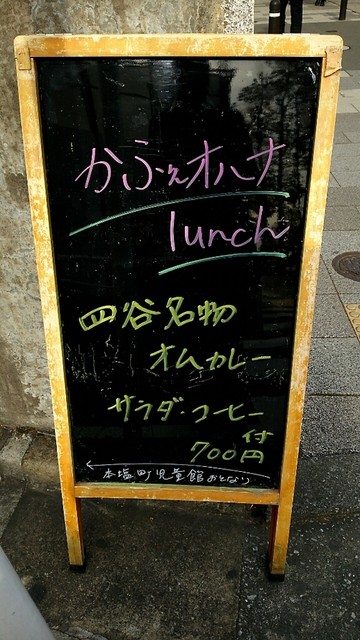 かふぇオハナ
lunch
四谷名物
オムカレー
サラダ・コーヒー
付
700円
本塩町児童館おとなり